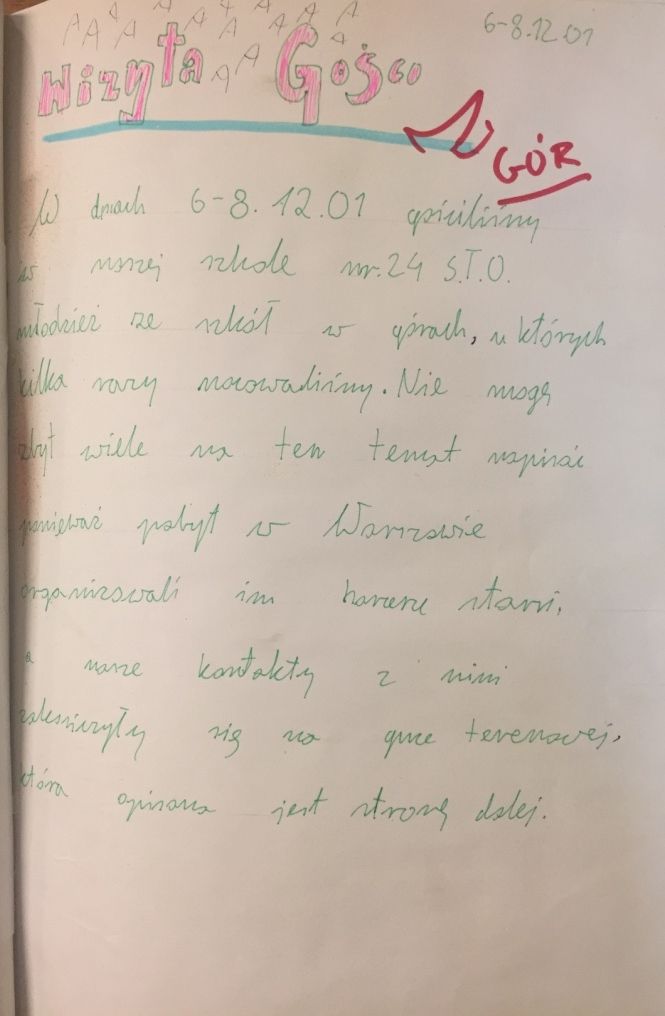 A A A A A A A A A A A A A
6-8.12.01
Wizyta Gości
Z GÓR
W dniach 6-8.12.01 gościliśmy
w naszej szkole nr.24 S.T.O.
młodzież ze szkół w górach, w których
kilka razy nocowaliśmy. Nie mogę
zbyt wiele na ten temat napisać
ponieważ pobyt w Warszawie
organizowali im harcerze starsi,
a nasze kontakty z nimi
zakończyły się na grze terenowej,
która opisana jest stronę dalej.